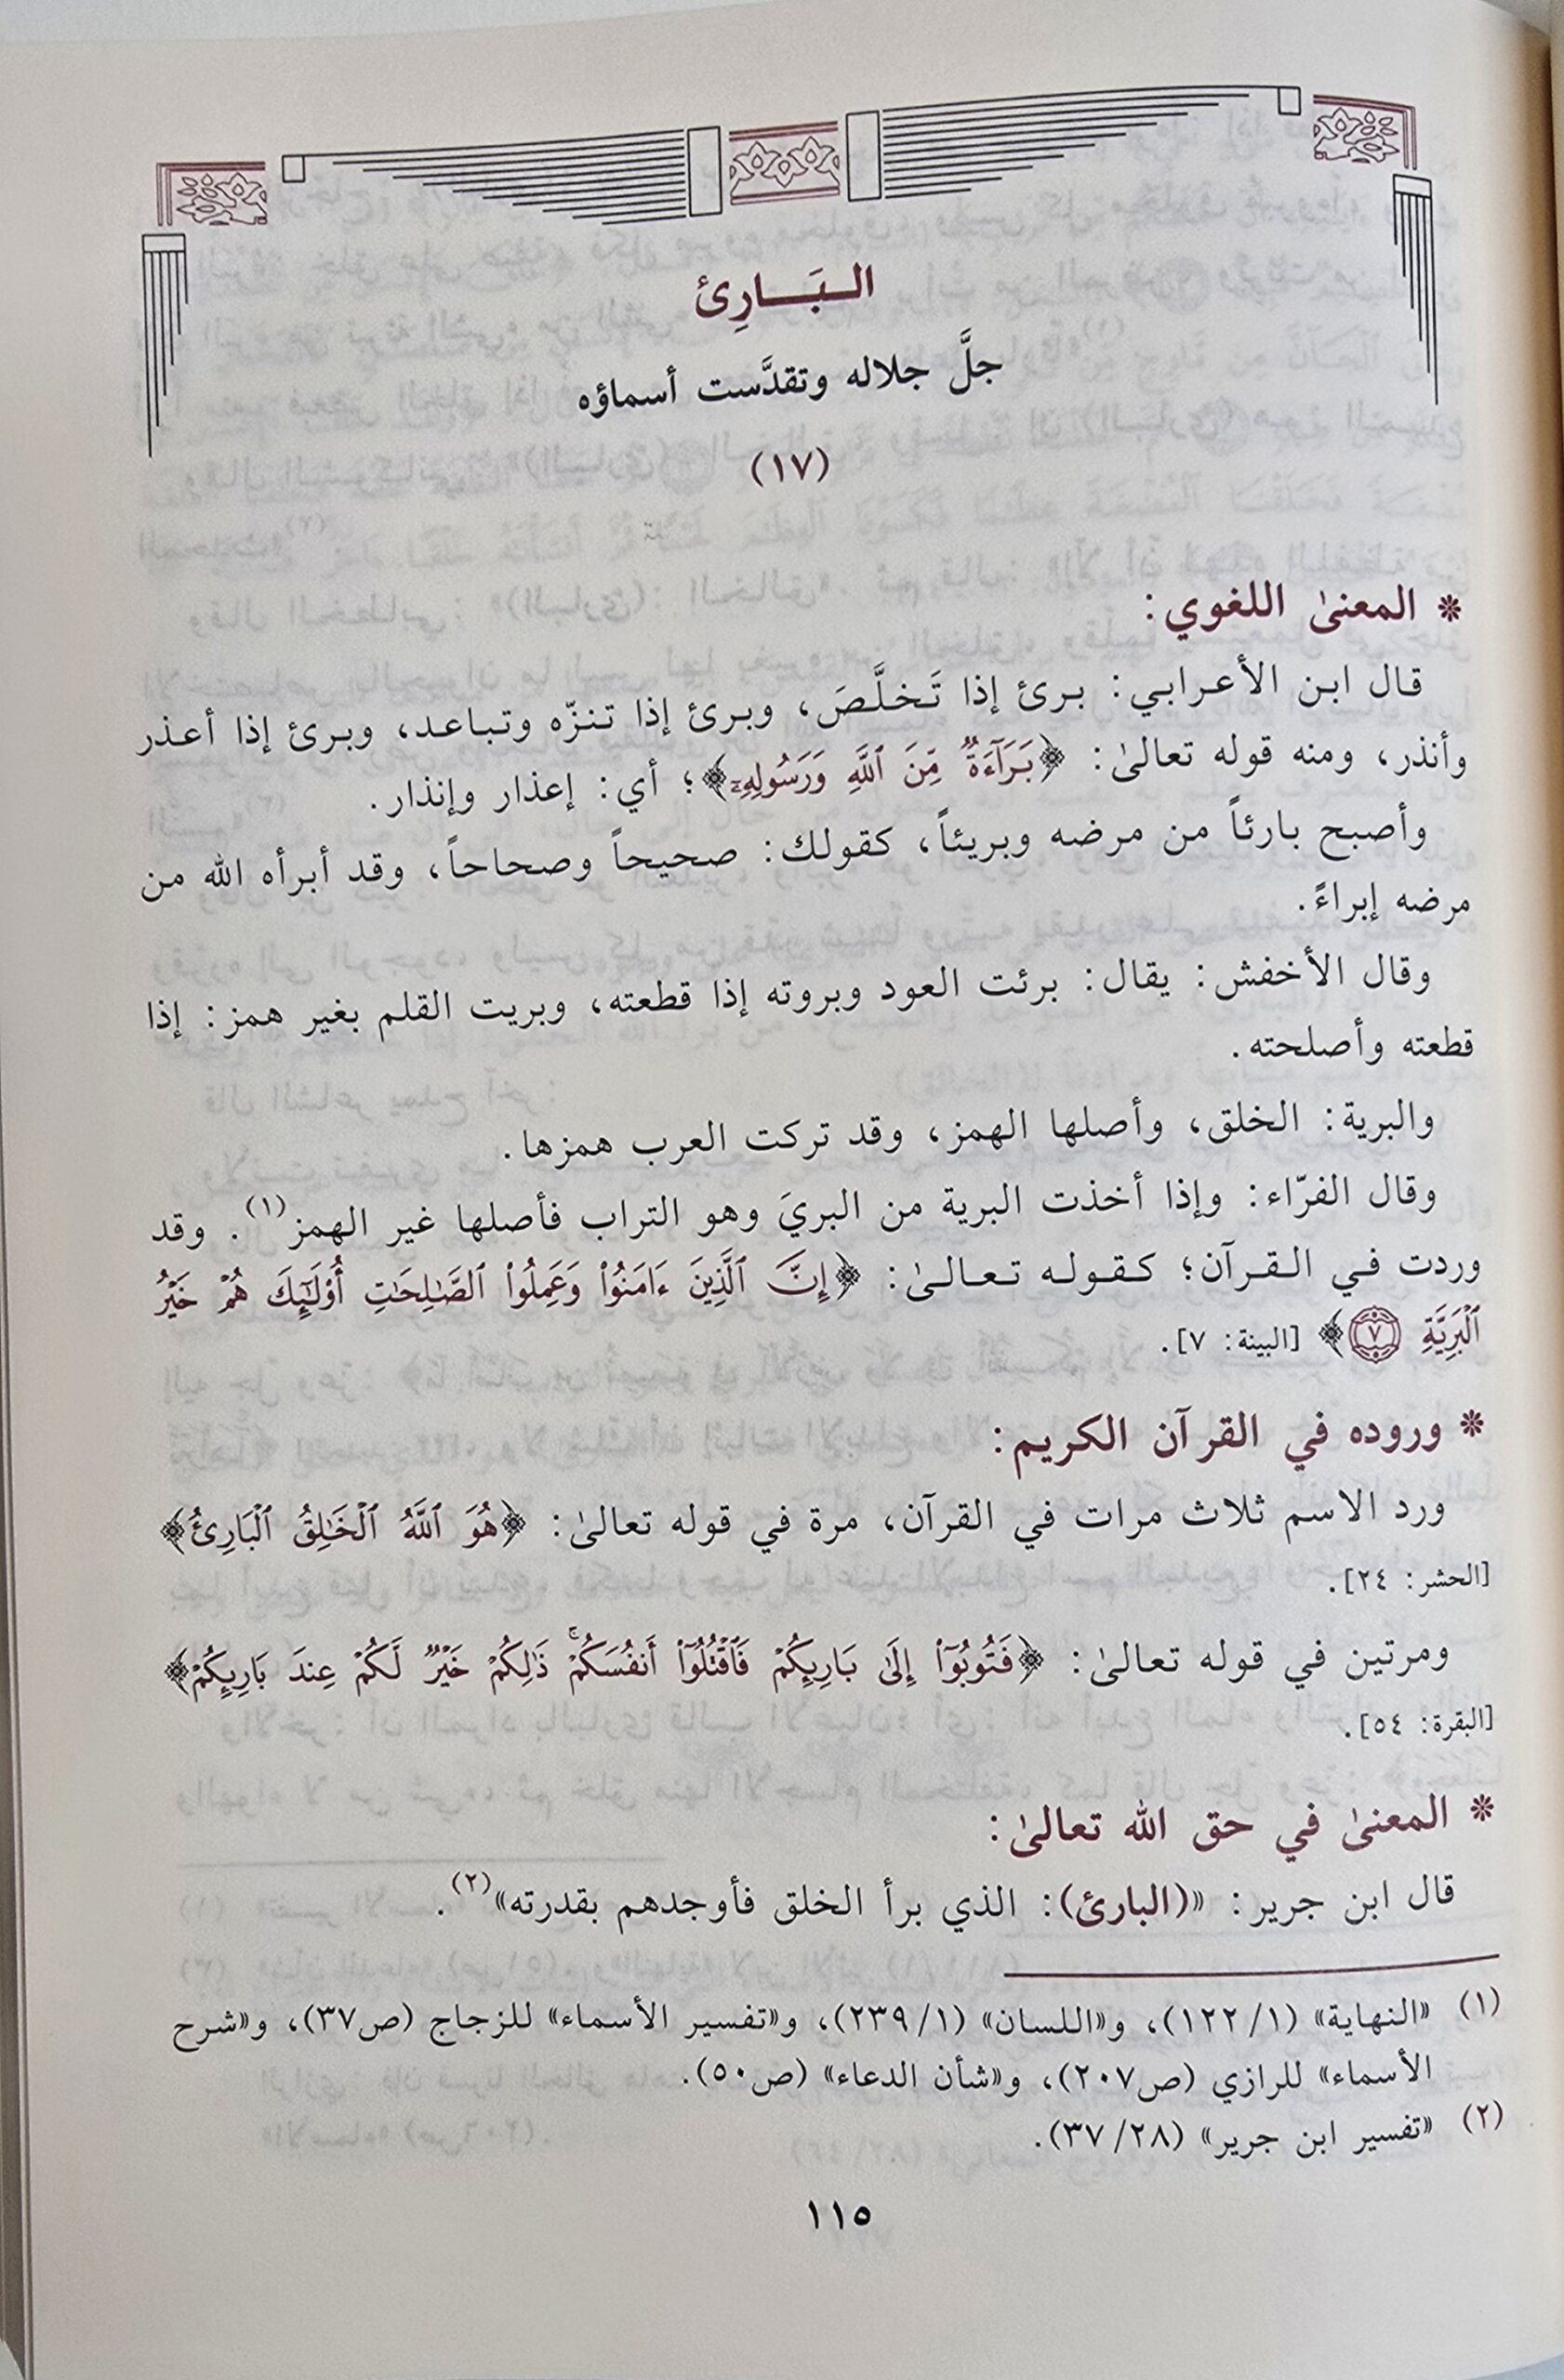 البَارِئ
جلَّ جلاله وتقدَّست أسماؤه
(١٧)
* المعنىٰ اللغوي:
قال ابن الأعرابي: برئ إذا تَخلَّصَ، وبرئ إذا تنزّه وتباعد، وبرئ إذا أعذر
وأنذر، ومنه قوله تعالىٰ: ﴿بَرَآءَةٌ مِّنَ ٱللَّهِ وَرَسُولِهِۦٓ﴾؛ أي: إعذار وإنذار.
وأصبح بارئاً من مرضه وبريئاً، كقولك: صحيحاً وصحاحاً، وقد أبرأه الله من
مرضه إبراءً.
وقال الأخفش: يقال: برئت العود وبروته إذا قطعته، وبريت القلم بغير همز: إذا
قطعته وأصلحته.
والبرية: الخلق، وأصلها الهمز، وقد تركت العرب همزها.
وقال الفرّاء: وإذا أخذت البرية من البريَ وهو التراب فأصلها غير الهمز(١). وقد
وردت في القرآن؛ كقوله تعالىٰ: ﴿إِنَّ ٱلَّذِينَ ءَامَنُوا۟ وَعَمِلُوا۟ ٱلصَّٰلِحَٰتِ أُو۟لَٰٓئِكَ هُمْ خَيْرُ
ٱلْبَرِيَّةِ ٧﴾ [البينة: ٧].
* وروده في القرآن الكريم:
ورد الاسم ثلاث مرات في القرآن، مرة في قوله تعالىٰ: ﴿هُوَ ٱللَّهُ ٱلْخَٰلِقُ ٱلْبَارِئُ﴾
[الحشر: ٢٤].
ومرتين في قوله تعالىٰ: ﴿فَتُوبُوٓا۟ إِلَىٰ بَارِئِكُمْ فَٱقْتُلُوٓا۟ أَنفُسَكُمْ ۚ ذَٰلِكُمْ خَيْرٌ لَّكُمْ عِندَ بَارِئِكُمْ﴾
[البقرة: ٥٤].
* المعنىٰ في حق الله تعالىٰ:
قال ابن جرير: «(البارئ): الذي برأ الخلق فأوجدهم بقدرته»(٢).
(١) «النهاية» (١/١٢٢)، و«اللسان» (١/٢٣٩)، و«تفسير الأسماء» للزجاج (ص٣٧)، و«شرح
الأسماء» للرازي (ص٢٠٧)، و«شأن الدعاء» (ص٥٠).
(٢) «تفسير ابن جرير» (٢٨/٣٧).
١١٥